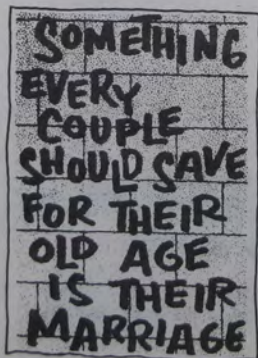 SOMETHING
EVERY
COUPLE
SHOULD SAVE
FOR THEIR
OLD AGE
IS THEIR
MARRIAGE